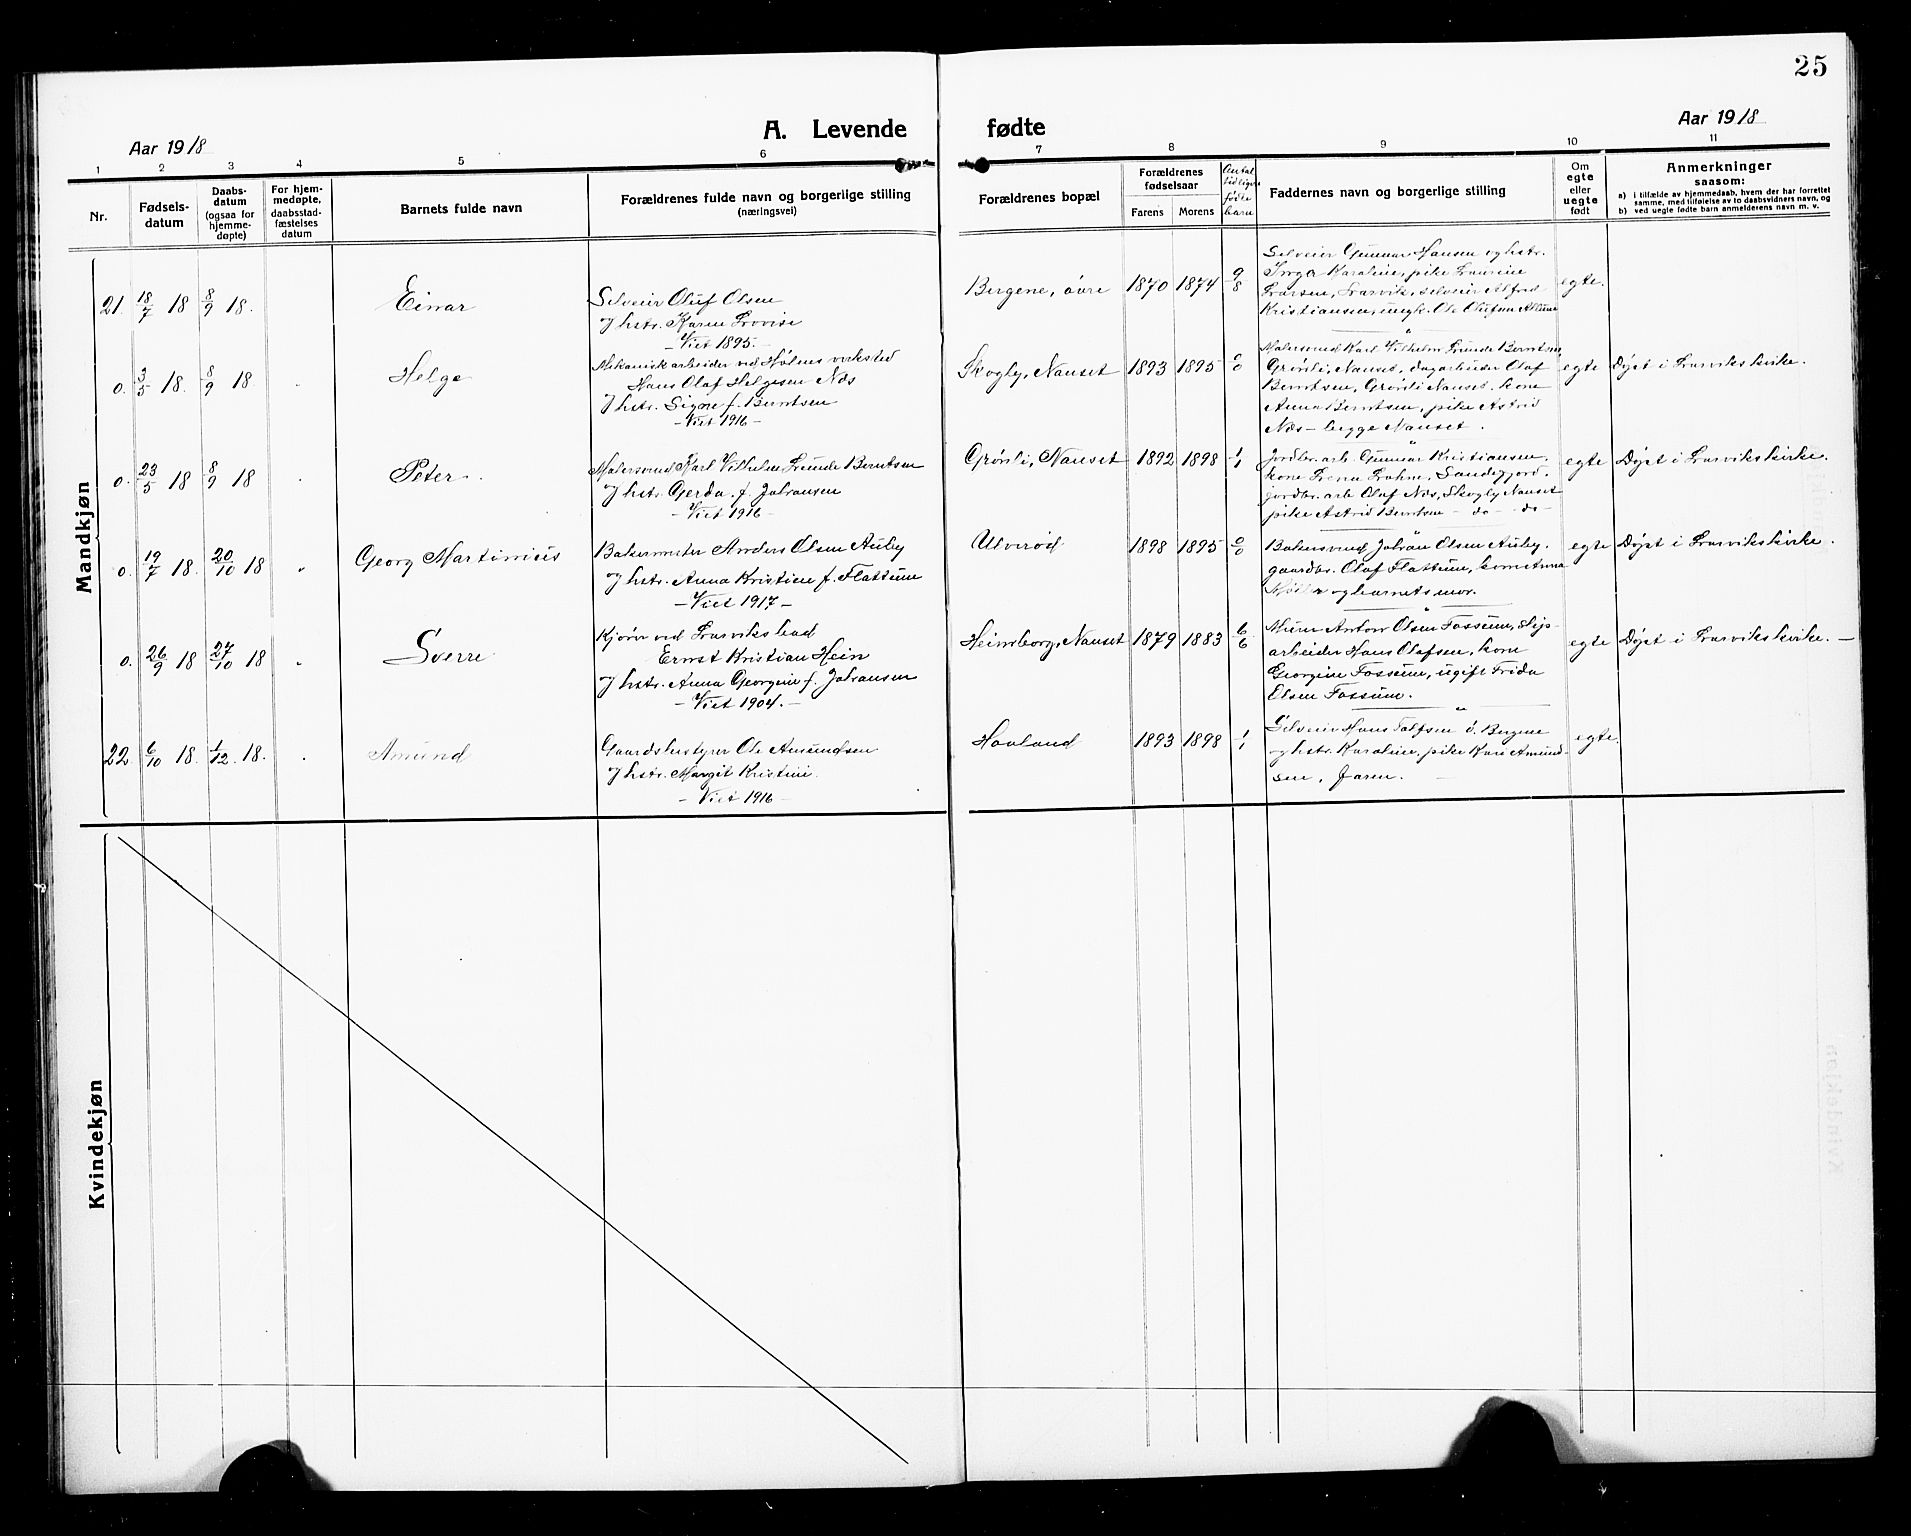 25
Aar 1918
A. Levende fødte
Aar 1918
1 2 3 4 5 6 7 8 9 10 11
Nr.
Fødsels-
datum
Daabs-
datum
(ogsaa for
hjemme-
døpte)
For hjem-
medøpte,
daabsstad-
fæstelses
datum
Barnets fulde navn
Forældrenes fulde navn og borgerlige stilling
(næringsvei)
Forældrenes bopæl
Forældrenes
fødselsaar
Farens Morens
Antal
tidligere
fødte
barn
Faddernes navn og borgerlige stilling
Om
egte
eller
uegte
født
Anmerkninger
saasom:
a) i tilfælde av hjemmedaab, hvem der har forrettet
samme, med tilføielse av to daabsvidners navn, og
b) ved uegte fødte barn anmelderens navn m. v.
Mandkjøn
21. 18/7 18 8/9 18. Einar
Selveier Oluf Olsen
og hstr. Karen Lovise
- Viet 1895. -
Bergene, øvre 1870 1874 9/8
Selveier Gunnar Hansen og hstr.
Inga Karoline, pike Laurine
Larsen, Larvik, selveier Alfred
Kristiansen, ungk. Ole Olufsen
egte.
0. 3/5 18. 8/9 18 Helge
Mekanisk arbeider ved Hølens verksted
Hans Olaf Helgesen Næs
og hstr. Signe f. Berntsen
- Viet 1916 -
Skogly, Nanset 1893 1895 0/0
Malersvend Karl Vilhelm Lunde Berntsen,
Grønli, Nanset, dagarbeider Olaf
Berntsen, Grønli Nanset, kone
Anna Berntsen, pike Astrid
Næs - begge Nanset.
egte Døpt i Larviks kirke.
0. 23/5 18 8/9 18 Peter.
Malersvend Karl Vilhelm Lunde Berntsen
og hstr. Gerda f. Johansen
- Viet 1916 -
Grønli, Nanset 1892 1898 1/1
Jordbr. arb. Gunnar Kristiansen,
kone Lena Sandefjord,
jordbr. arb Olaf Næs, Skogly Nanset
pike Astrid Berntsen - do - do -
egte Døpt i Larviks kirke.
0. 19/7 18. 20/10 18 Georg Martinius
Bakermester Anders Olsen Auby
og hstr. Anna Kristine f. Flattum
- Viet 1917 -
Ulverød 1898 1895 0/0
Bakersvend Johan Olsen Auby,
gaardbr. Olaf Flattum, kone Anna
og barnets mor.
egte Døpt i Larviks kirke.
0. 26/9 18 27/10 18 Sverre
Kjører ved Larviks bad
Ernst Kristian Hein
og hstr. Anna Georgine f. Johansen
- Viet 1904. -
Heimborg, Nanset 1879 1883 6/6
Murer Anton Olsen Fossum, slip-
arbeider Hans Olafsen, kone
Georgine Fossum, ugift Frida
Elsen Fossum.
egte Døpt i Larviks kirke. -
22 6/10 18. 1/12. 18. Amund
Gaardsbestyrer Ole Amundsen
og hstr. Margit Kristine.
- Viet 1916 -
Hovland 1893 1898 1/1
Selveier Hans ø. Bergene
og hstr. Karoline, pike Kari Amund-
sen, Jaren.
egte.
Kvindekjøn